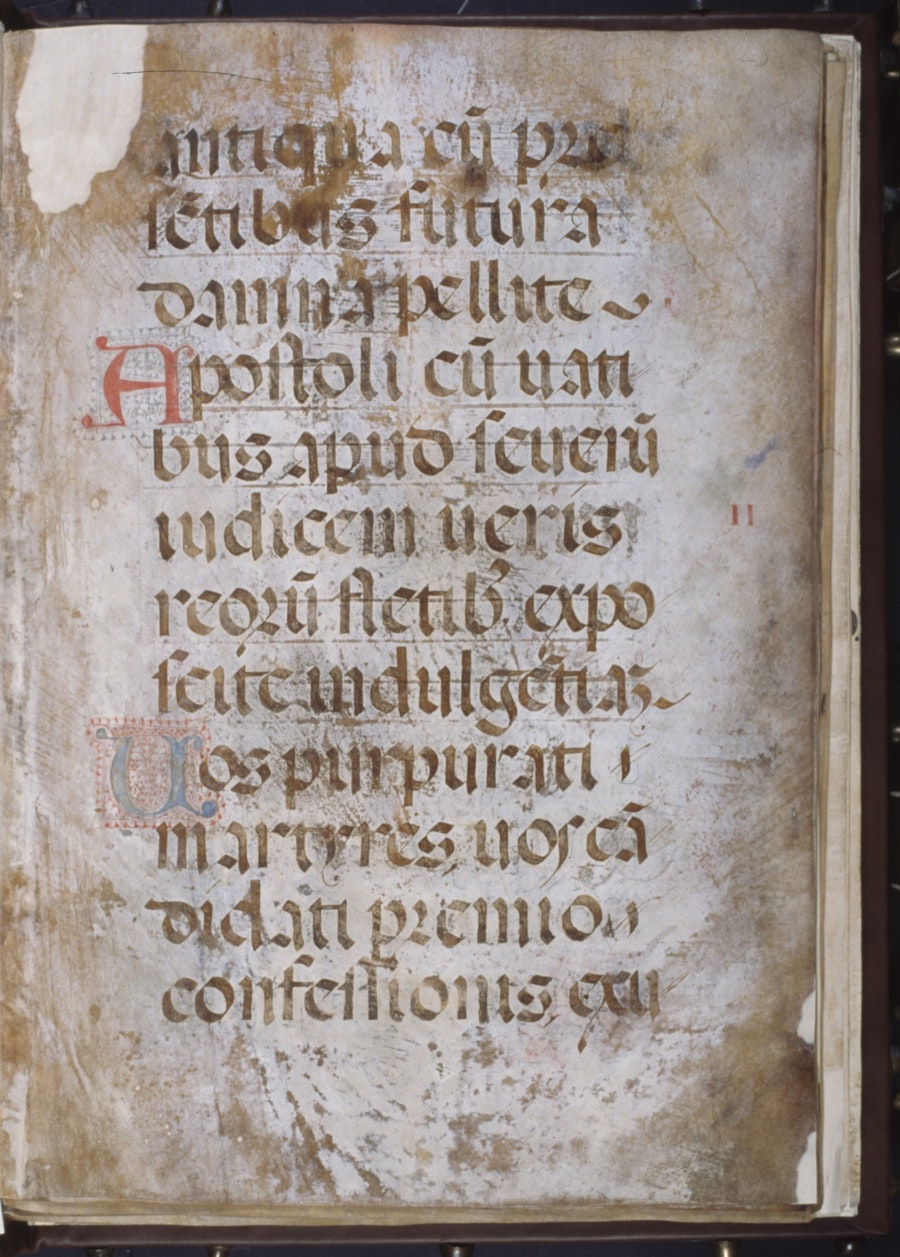 antiqua cū pre
sētibus futura
damna pellite
Apostoli cū uati
bus apud seuerū
iudicem ueris
reorū fletib' expo
scite indulgētiaꝫ
Uos purpurati
martyres, uos cā
didati premio
confessionis, exu
II